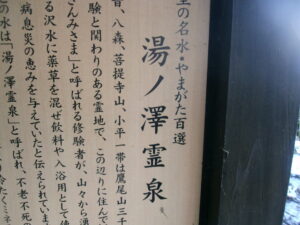 里の名水・やまがた百選
湯ノ澤霊泉
昔、八森、菩提寺山、小平一帯は鷹尾山三千
験と関わりのある霊地で、この辺りに住んで
さんみさま」と呼ばれる修験者が、山々から湧
る沢水に薬草を混ぜ飲料や入浴用として使
病息災の恵みを与えていたと伝えられていま
の水は「湯ノ澤霊泉」と呼ばれ、不老不死の